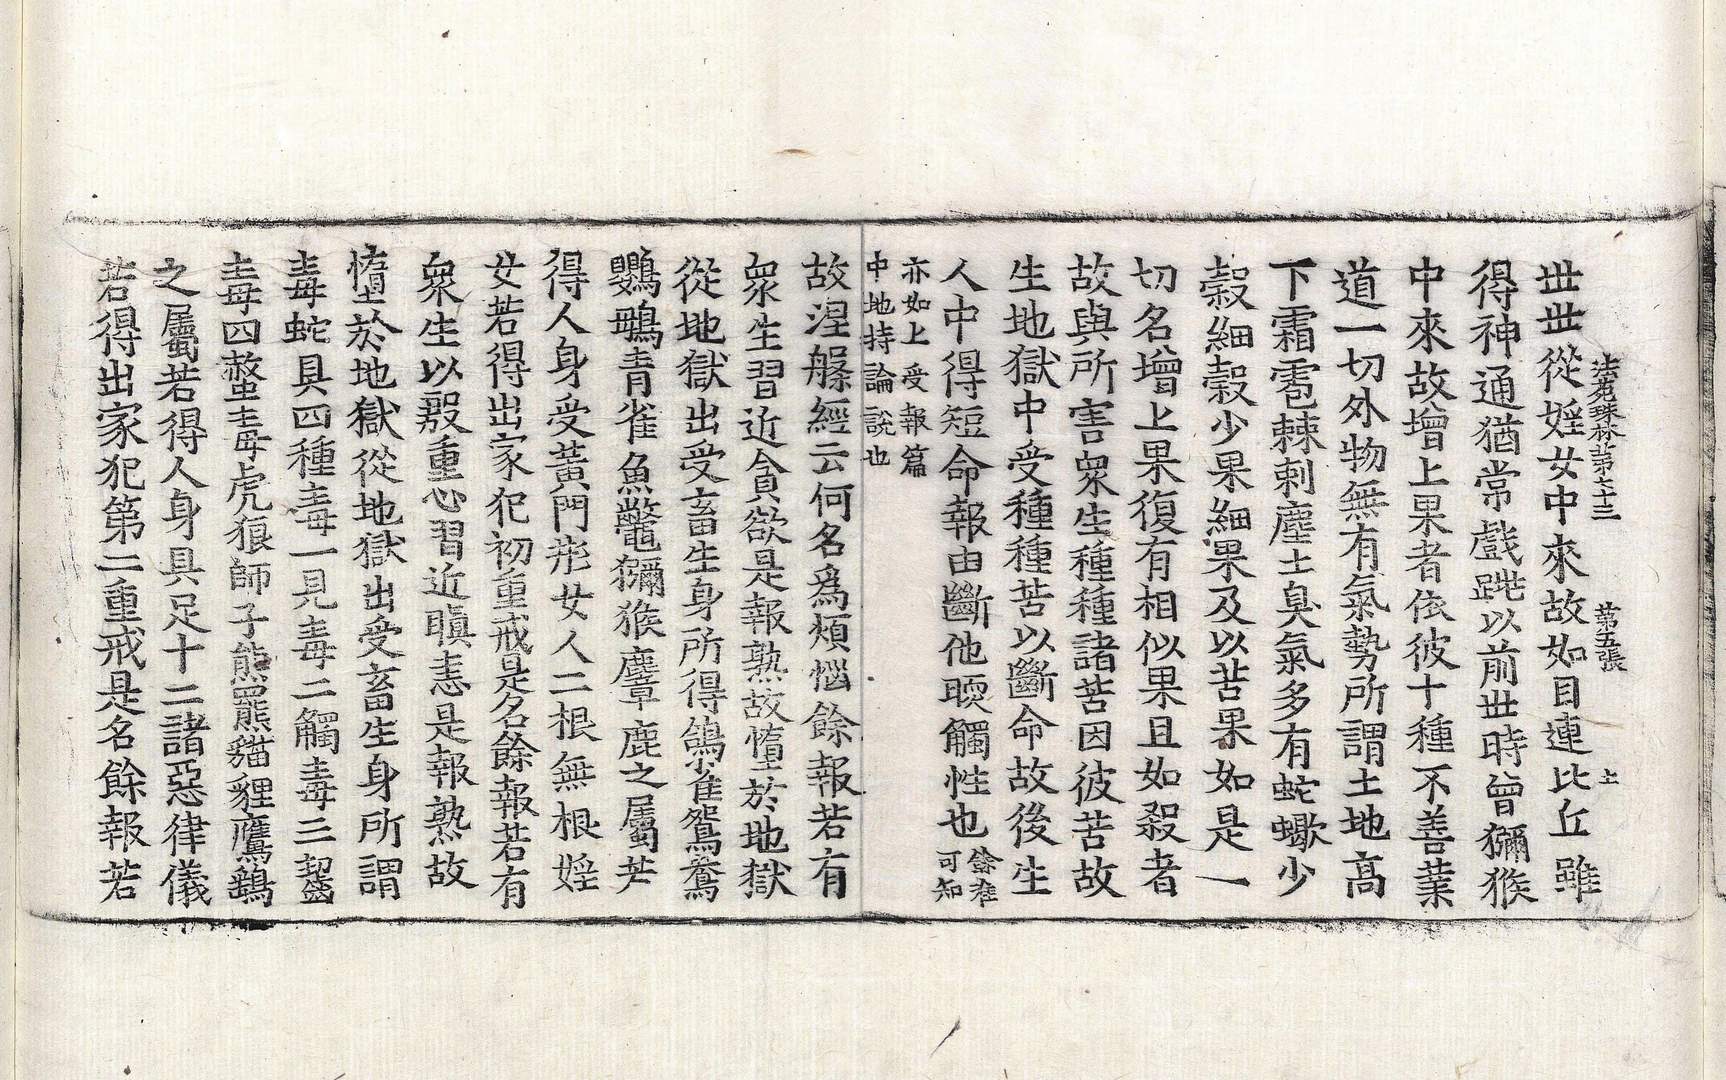 法苑珠林第七十三　第五張　上
世世從婬女中來故如目連比丘雖
得神通猶常戲跳以前世時曾獼猴
中來故增上果者依彼十種不善業
道一切外物無有氣勢所謂土地高
下霜雹棘刺塵土臭氣多有蛇蠍少
穀細穀少果細果及以苦果如是一
切名增上果復有相似果且如殺者
故與所害衆生種種諸苦因彼苦故
生地獄中受種種苦以斷命故後生
人中得短命報由斷他煗觸性也餘准可知
亦如上受報篇
中地持論說也
故涅槃經云何名爲煩惱餘報若有
衆生習近貪欲是報熟故墮於地獄
從地獄出受畜生身所得鴿雀鴛鴦
鸚鵡青雀魚鼈獼猴麞鹿之屬若
得人身受黃門形女人二根無根婬
女若得出家犯初重戒是名餘報若有
衆生以殷重心習近瞋恚是報熟故
墮於地獄從地獄出受畜生身所謂
毒蛇具四種毒一見毒二觸毒三齧
毒四螫毒虎狼師子熊羆貓貍鷹鷂
之屬若得人身具足十二諸惡律儀
若得出家犯第二重戒是名餘報若